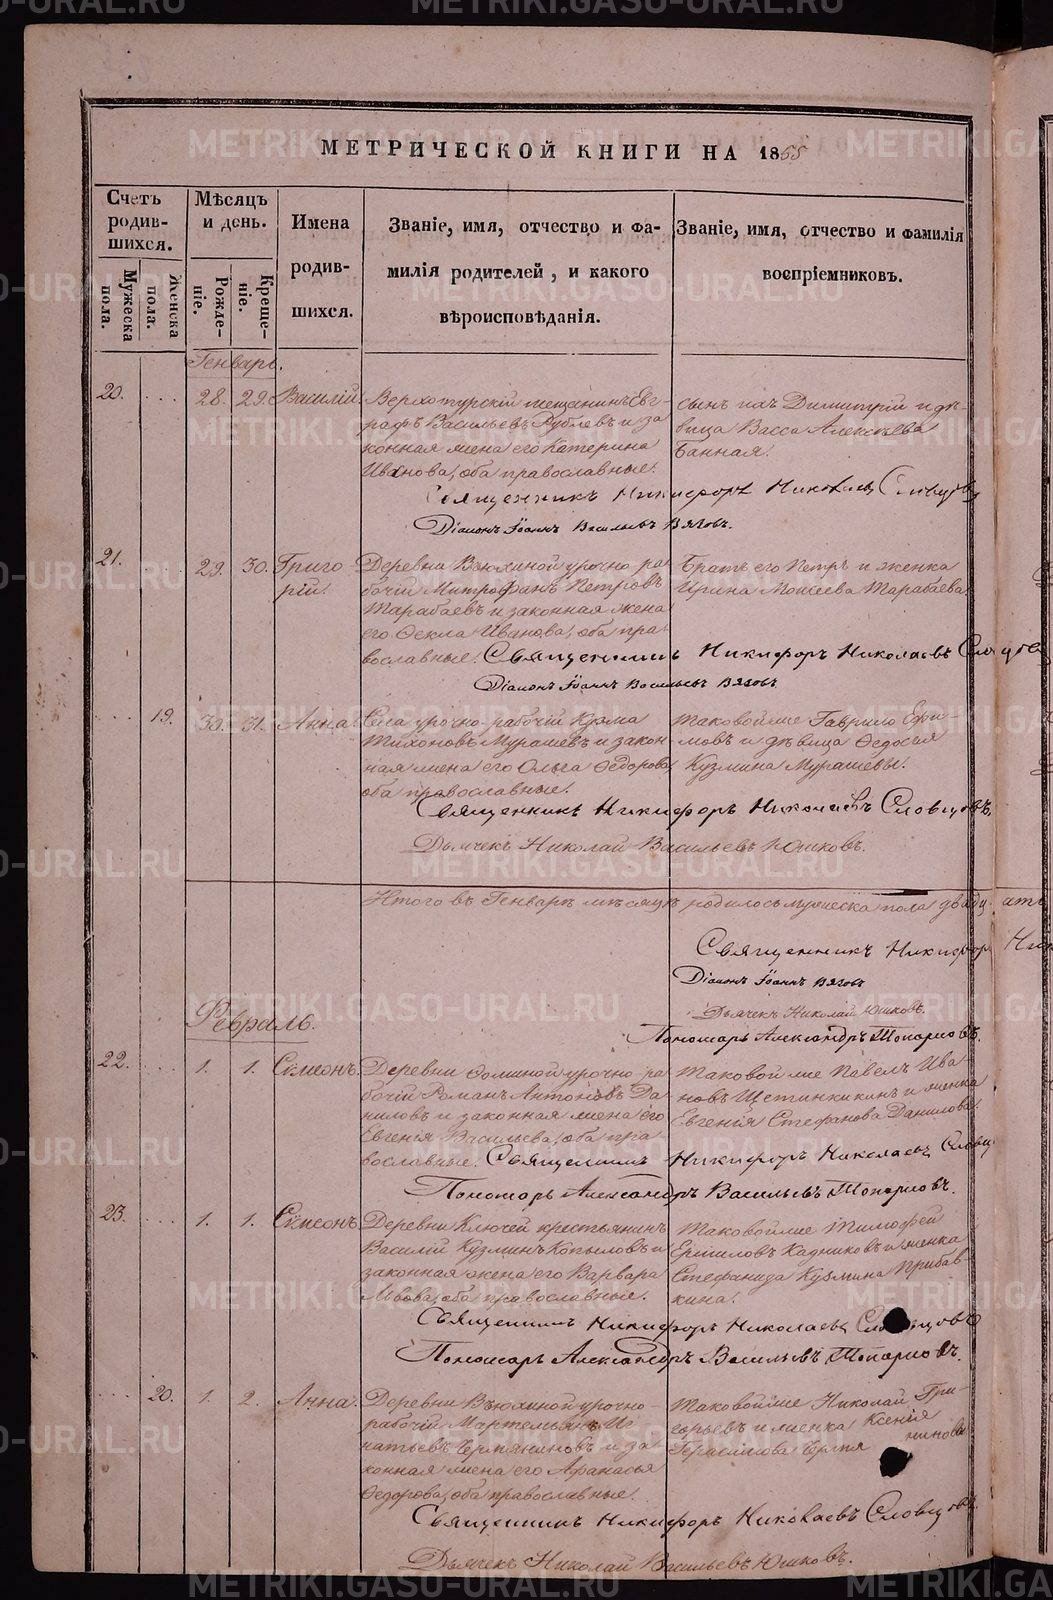 МЕТРИЧЕСКОЙ КНИГИ НА 1865
Счетъ родив-шихся.
Мужеска пола.
Женска пола.
Мѣсяцъ и день.
Рожде-ніе.
Креще-ніе.
Имена родив-шихся.
Званіе, имя, отчество и фа-
милія родителей, и какого
вѣроисповѣданія.
Званіе, имя, отчество и фамилія
воспріемниковъ.
Генварь.
20. 28. 29. Василій.
Верхотурскій мещанинъ Ев-
графъ Васильевъ Рублевъ и за
конная жена его Катерина
Иванова, оба православные.
сынъ ихъ Димитрій и дѣ-
вица Васса Алексѣева
Банная.
Священникъ Никифоръ Николаевъ Словцовъ
Діаконъ Іоаннъ Васильевъ Вязовъ.
21. 29. 30. Григо-
рій.
Деревни Вьюхиной урочно-ра
бочій Митрофанъ Петровъ
Тарабаевъ и законная жена
его Фекла Иванова, оба пра-
вославные.
Братъ его Петръ и женка
Ирина Моисеева Тарабаева
Священникъ Никифоръ Николаевъ Словцовъ
Діаконъ Іоаннъ Васильевъ Вязовъ
19. 30. 31. Анна.
Села урочно-рабочій Кузма
Тихоновъ Мурашевъ и закон
ная жена его Ольга Ѳедорова
оба православные.
таковой же Гаврило Ефи-
мовъ и дѣвица Ѳедосья
Кузмина Мурашевы.
Священникъ Никифоръ Николаевъ Словцовъ.
Дьячекъ Николай Васильевъ Юшковъ.
Итого въ Генварѣ мѣсяцѣ родилось мужеска пола двадцать
Священникъ Никифоръ
Діаконъ Іоаннъ Вязовъ
Дьячекъ Николай Юшковъ.
Пономарь Александръ Топорковъ.
Февраль.
22. 1. 1. Сѵмеонъ.
Деревни Ѳоминой урочно-ра
бочій Романъ Антоновъ Да-
ниловъ и законная жена его
Евгенія Васильева, оба пра-
вославные.
Таковой же Павелъ Ива-
новъ Щетинкинъ и женка
Евгенія Стефанова Данилова.
Священникъ Никифоръ Николаевъ Словц
Пономарь Александръ Васильевъ Топорковъ.
23. 1. 1. Сѵмеонъ.
Деревни Ключей крестьянинъ
Василій Кузминъ Копыловъ и
законная жена его Варвара
Львова, оба православные.
Таковой же Тимофей
Ермиловъ Кадниковъ и женка
Стефанида Кузмина Прибав-
кина.
Священникъ Никифоръ Николаевъ Словцовъ
Пономарь Александръ Васильевъ Топорковъ.
20. 1. 2. Анна.
Деревни Вьюхиной урочно-
рабочій Мартемьянъ Иг
натьевъ Чермяниновъ и за
конная жена его Афанасья
Ѳедорова, оба православные.
Таковой же Николай Гри-
горьевъ и женка Ксенія
Герасимова Чермя
нинова
Священникъ Никифоръ Николаевъ Словцовъ.
Дьячекъ Николай Васильевъ Юшковъ.
METRIKI.GASO-URAL.RU